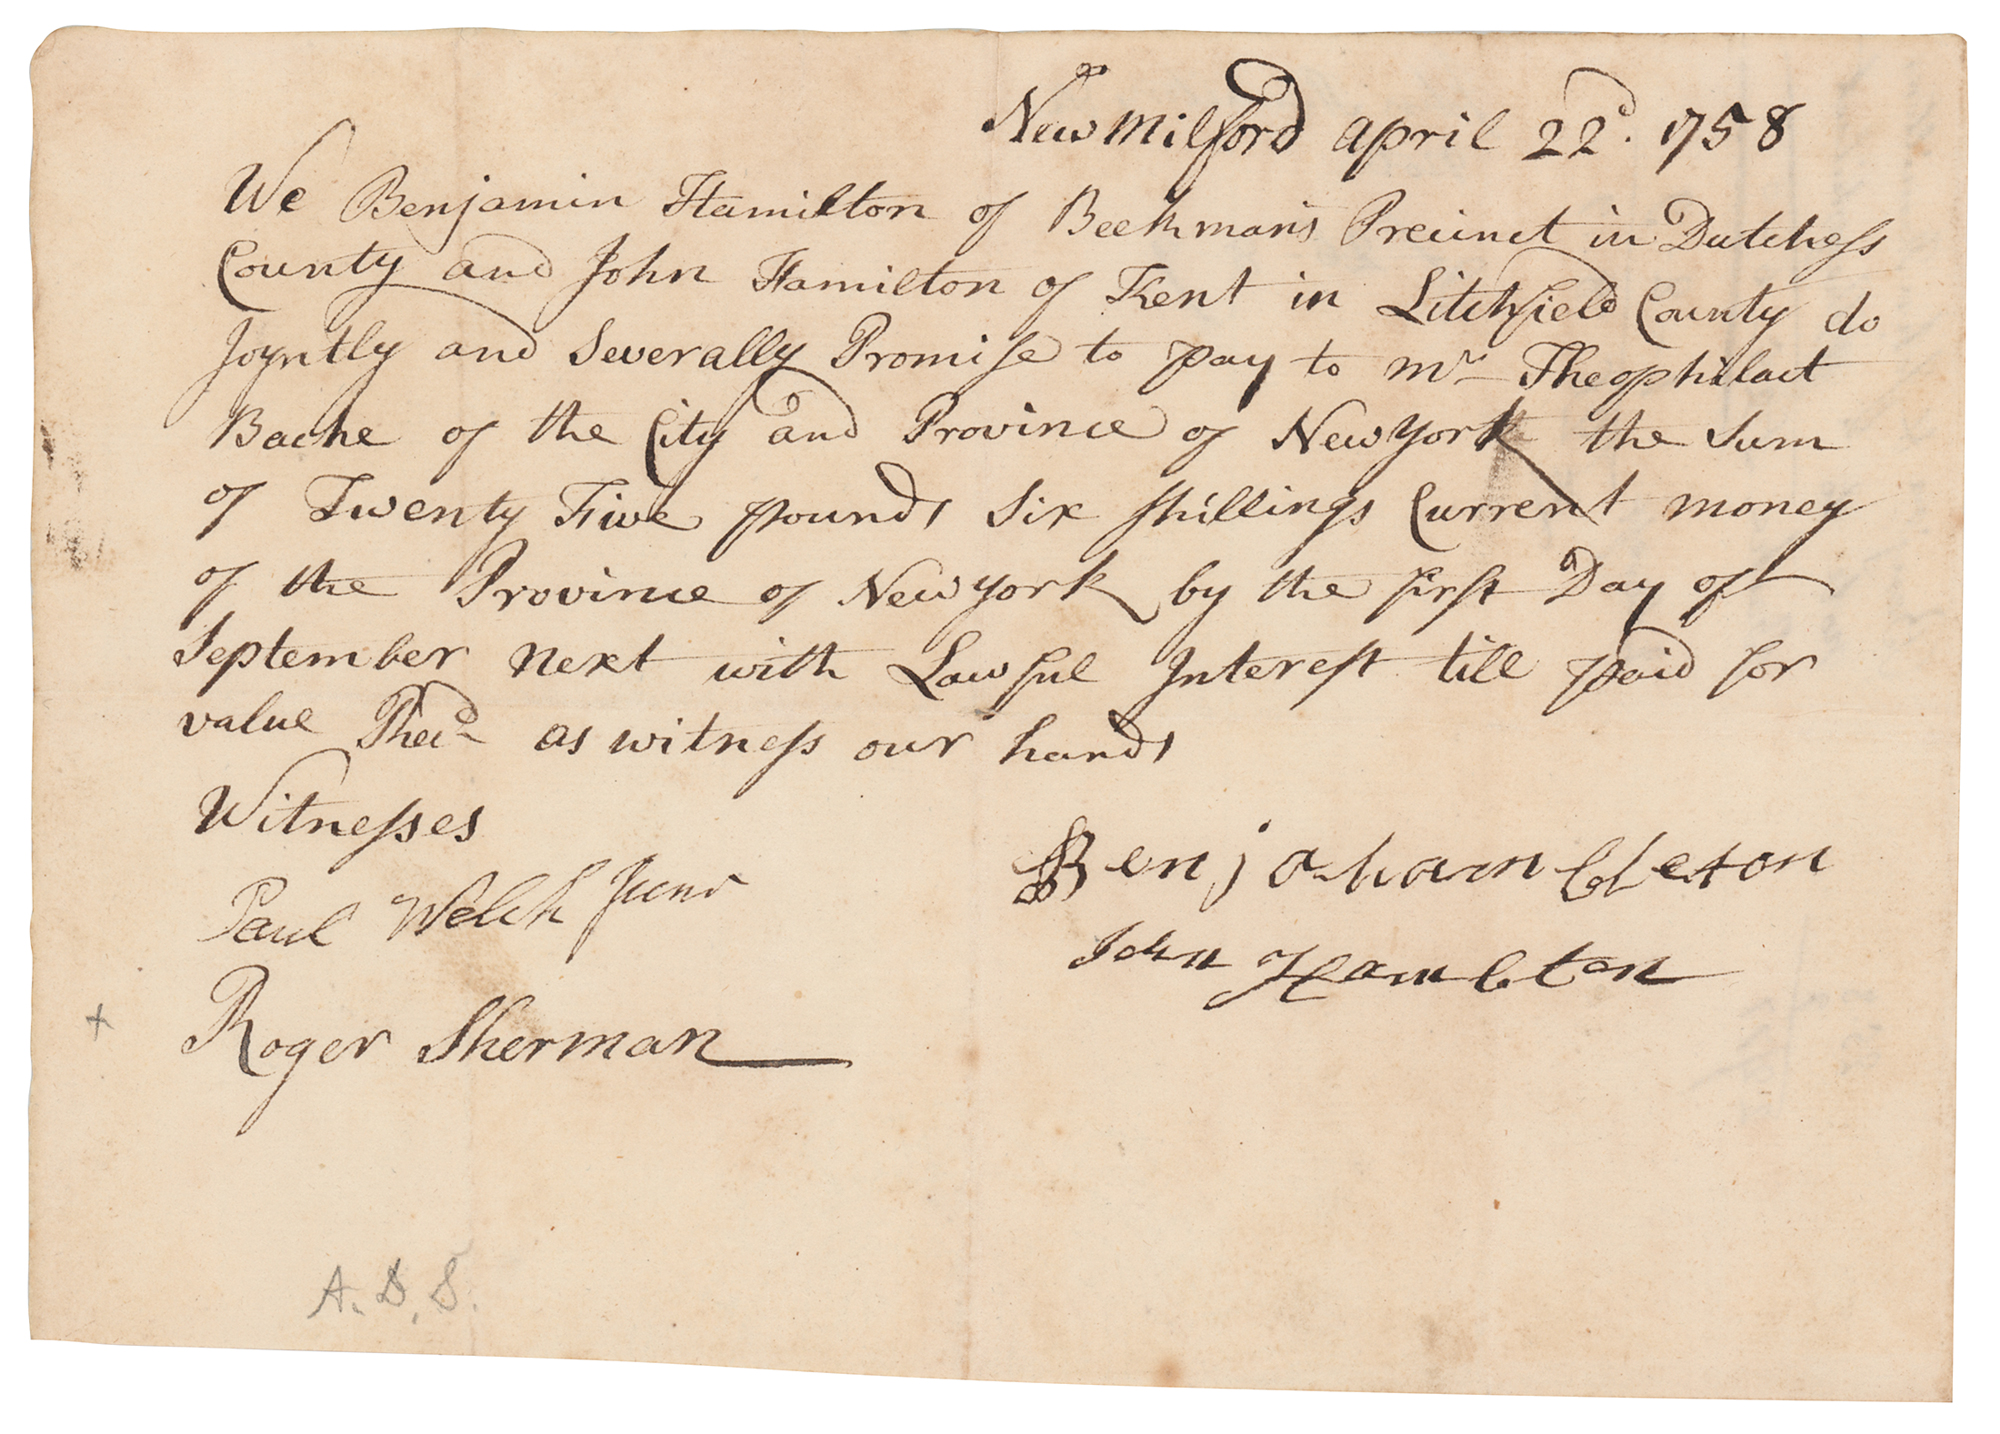 New Milford april 22d. 1758
We Benjamin Hamilton of Beekman's Precinct in Dutchess
County and John Hamilton of Kent in Litchfield County do
Joyntly and Severally Promise to pay to Mr Theophilact
Bache of the City and Province of New York the Sum
of Twenty Five pounds Six shillings Current money
of the Province of New york by the first Day of
September next with Lawful Interest till paid for
value Recd as witness our hands
Witnesses
Paul Welch Junr
Roger Sherman
Benja hambleton
John Hambleton
+
A.D.S.